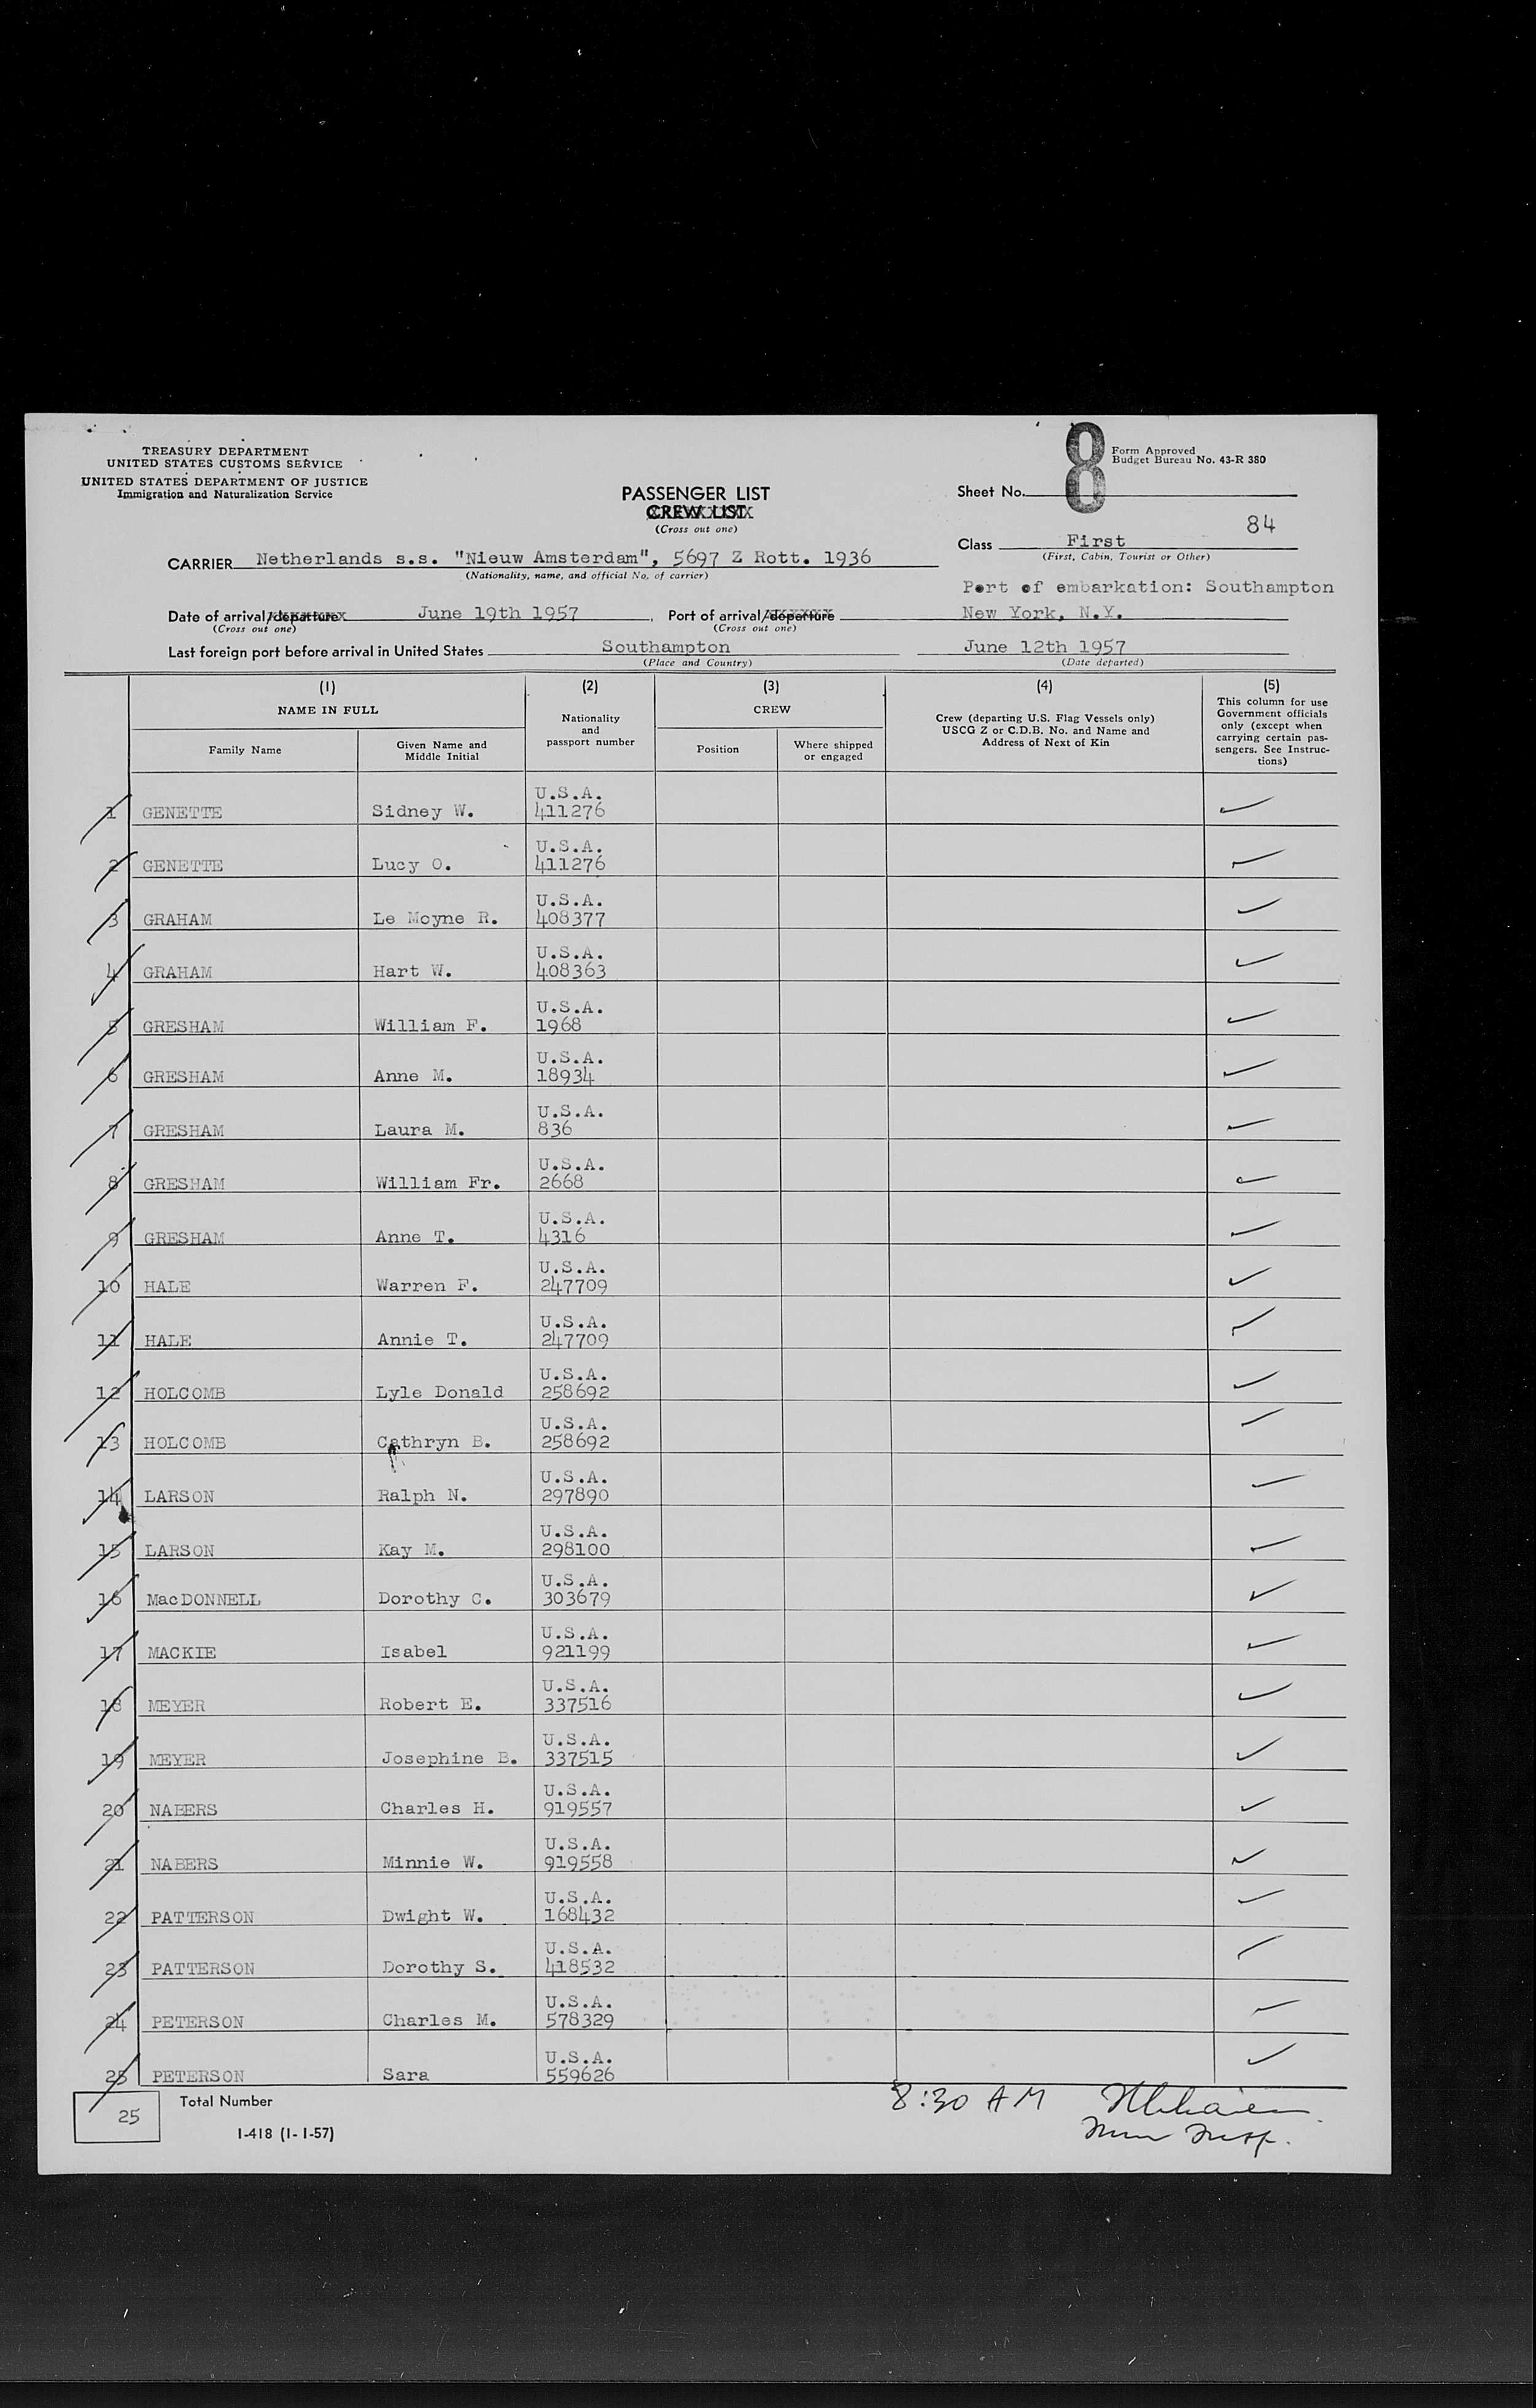 TREASURY DEPARTMENT
UNITED STATES CUSTOMS SERVICE
UNITED STATES DEPARTMENT OF JUSTICE
Immigration and Naturalization Service
8
Form Approved
Budget Bureau No. 43-R 380
Sheet No.
PASSENGER LIST
CREW LIST
(Cross out one)
84
Class First
(First, Cabin, Tourist or Other)
CARRIER Netherlands s.s. "Nieuw Amsterdam", 5697 Z Rott. 1936
(Nationality, name, and official No. of carrier)
Port of embarkation: Southampton
Date of arrival/departure June 19th 1957. Port of arrival/departure New York, N.Y.
(Cross out one) (Cross out one)
Last foreign port before arrival in United States Southampton June 12th 1957
(Place and Country) (Date departed)
(1) (2) (3) (4) (5)
NAME IN FULL
Family Name
Given Name and
Middle Initial
Nationality
and
passport number
CREW
Position
Where shipped
or engaged
Crew (departing U.S. Flag Vessels only)
USCG Z or C.D.B. No. and Name and
Address of Next of Kin
This column for use
Government officials
only (except when
carrying certain pas-
sengers. See Instruc-
tions)
U.S.A.
1 GENETTE Sidney W. 411276
U.S.A.
2 GENETTE Lucy O. 411276
U.S.A.
3 GRAHAM Le Moyne R. 408377
U.S.A.
4 GRAHAM Hart W. 408363
U.S.A.
5 GRESHAM William F. 1968
U.S.A.
6 GRESHAM Anne M. 18934
U.S.A.
7 GRESHAM Laura M. 836
U.S.A.
8 GRESHAM William Fr. 2668
U.S.A.
9 GRESHAM Anne T. 4316
U.S.A.
10 HALE Warren F. 247709
U.S.A.
11 HALE Annie T. 247709
U.S.A.
12 HOLCOMB Lyle Donald 258692
U.S.A.
13 HOLCOMB Cathryn B. 258692
U.S.A.
14 LARSON Ralph N. 297890
U.S.A.
15 LARSON Kay M. 298100
U.S.A.
16 MacDONNELL Dorothy C. 303679
U.S.A.
17 MACKIE Isabel 921199
U.S.A.
18 MEYER Robert E. 337516
U.S.A.
19 MEYER Josephine B. 337515
U.S.A.
20 NABERS Charles H. 919557
U.S.A.
21 NABERS Minnie W. 919558
U.S.A.
22 PATTERSON Dwight W. 168432
U.S.A.
23 PATTERSON Dorothy S. 418532
U.S.A.
24 PETERSON Charles M. 578329
U.S.A.
25 PETERSON Sara 559626
25 Total Number
8:30 AM
I-418 (1-1-57)